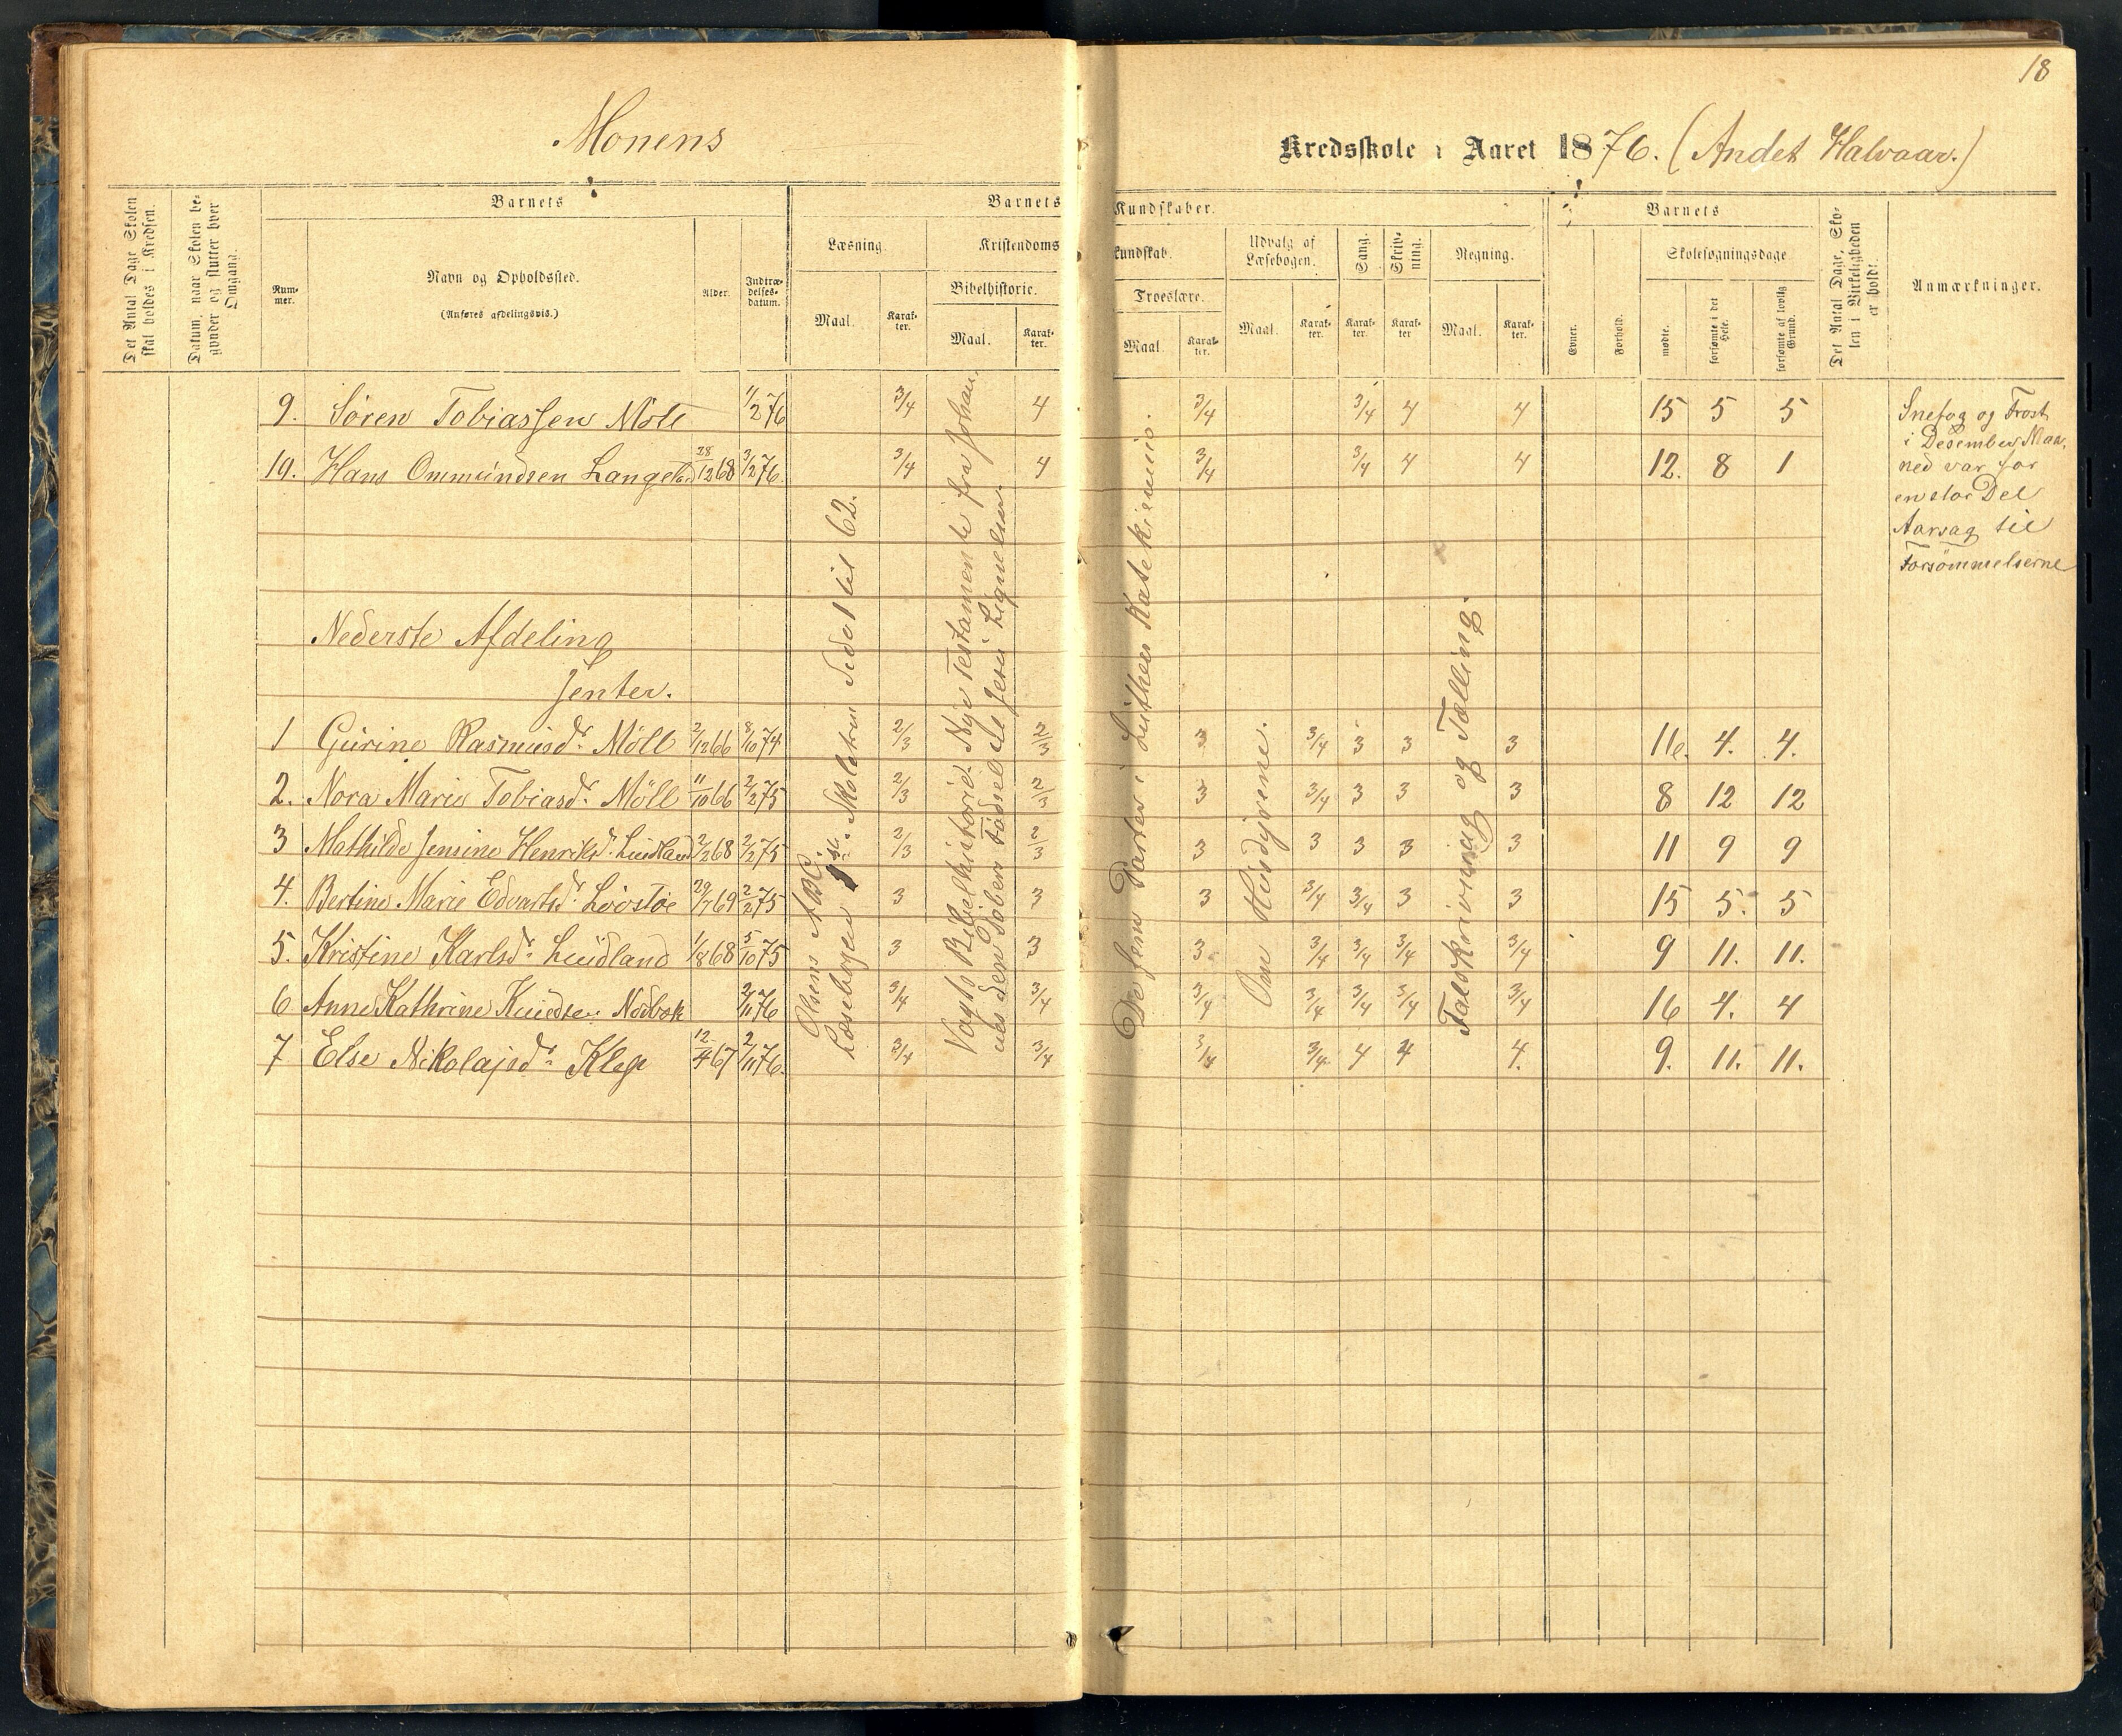 18
Monens
Kredsskole i Aaret 1876. (Andet Halvaar.)
Det Antal Dage Skolen skal holdes i Kredsen.
Datum, naar Skolen begynder og slutter hver Omgang.
Barnets
Num-
mer.
Navn og Opholdssted.
(Anføres afdelingsvis.)
Alder.
Indtræ-
delses-
datum.
Barnets
Kundskaber.
Læsning.
Maal.
Karak-
ter.
Kristendoms
kundskab.
Bibelhistorie.
Maal.
Karak-
ter.
Troeslære.
Maal.
Karak-
ter.
Udvalg af
Læsebogen.
Maal.
Karak-
ter.
Sang.
Karak-
ter.
Skriv-
ning.
Karak-
ter
Regning.
Maal.
Karak-
ter.
Barnets
Evner.
Forhold.
Skolesøgningsdage
mødte.
forsømte i det Hele.
forsømte af lovlig Grund.
Det Antal Dage, Sko-
len i Virkeligheden
er holdt.
Anmærkninger.
9. Søren Tobiassen Möll 11/2 76 3/4 4 3/4 3/4 4 4 15 5 5
10. Hans Ommundsen Langeland 28/12 68 3/2 76. 3/4 4 3/4 3/4 4 4 12. 8 1
Snefog og Frost
i Desember Maa-
ned var for
en stor Del
Aarsag til
Forsømmelserne
Nederste Afdeling
Jenter.
1 Gurine Rasmusdr. Möll 2/12 66 8/10 74 2/3 2/3 3 3/4 3 3 3 16. 4. 4.
2. Nora Marie Tobiasdr. Möll 11/10 66 2/2 75 2/3 2/3 3 3/4 3 3 3 8 12 12
3 Mathilde Jensine Henriksdr. Lundland 2/2 68 2/2 75 2/3 2/3 3 3 3 3 3 11 9 9
4. Bertine Marie Edvartsdr. Lövstöe 29/7 69 2/2 75 3 3 3 3/4 3/4 3 3 15 5. 5
5. Kristine Karlsdr. Lundland 1/8 68 5/10 75 3 3 3 3/4 3/4 3/4 3/4 9 11. 11.
6 Anne Kathrine Knudsen Nodbæk 2/11 76 3/4 3/4 3/4 3/4 3/4 3/4 3/4 16 4. 4
7 Else Nikolajsdr. Klep 12/4 67 2/11 76. 3/4 3/4 3/4 3/4 4 4 4. 9. 11. 11.
Olsens ABC.
Læsebogen 1ste Skoletrin Side 1 til 62.
Vogts Bibelhistorie. Nye Testamente fra Johan-
nes den Døbers Fødsel til Jesu Lignelser.
De fem Parter i Luthers Katekismus.
Om Husdyrene.
Talskrivning og Tælling.